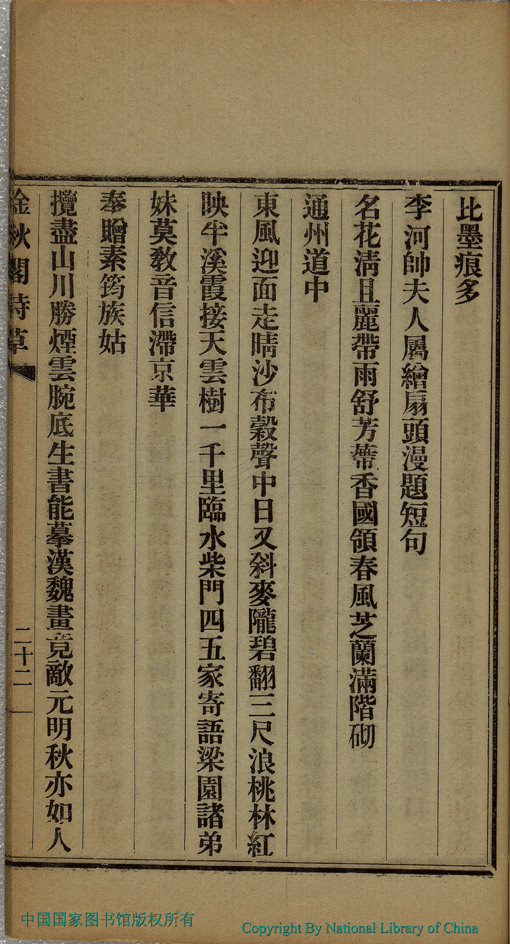 比墨痕多
李河帥夫人屬繪扇頭漫題短句
名花淸且麗帶雨舒芳蕚香國領春風芝蘭滿階砌
通州道中
東風迎面走晴沙布穀聲中日又斜麥隴碧翻三尺浪桃林紅
映半溪霞接天雲樹一千里臨水柴門四五家寄語梁園諸弟
妹莫敎音信滯京華
奉贈素筠族姑
攬盡山川勝煙雲腕底生書能摹漢魏畫竟敵元明秋亦如人
絵秋閣詩草
二十二
中国国家图书馆版权所有
Copyright By National Library of China